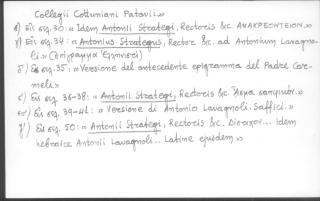 Collegii Cottuniani Patavii.»
β) Εἰς σεχ. 30: « Idem Antonii Strategi, Rectoris &c. ΑΝΑΚΡΕΟΝΤΕΙΟΝ.»
γ) Εἰς σεχ. 34: « Antonius Strategus, Rector &c. ad Antonium Lavagno-
li.» (Ἐπίγραμμα Ἑλληνιστί)
δ) Εἰς σεχ. 35: «Versione del antecedente epigramma del Padre Care-
meli»
ε) Εἰς σεχ. 36-38: « Antonii Strategi, Rectoris &c. ᾎσμα σαπφικόν.»
στ) Εἰς σεχ. 39-41: « Versione di Antonio Lavagnoli. Saffici.»
ζ) Εἰς σεχ. 50: « Antonii Strategi, Rectoris &c. Δίστιχον... Idem
hebraice Antonii Lavagnoli... Latine ejusdem »